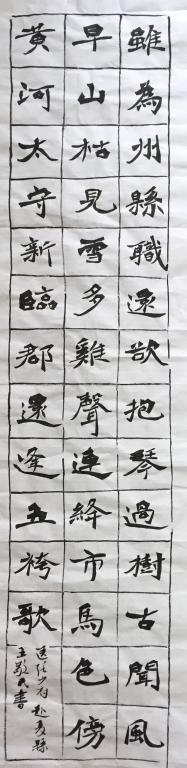 雖為州縣職還欲抱琴過樹古聞風
早山枯見雪多雞聲連絳市馬色傍
黃河太守新臨郡還逢五袴歌
送任少府赴夏縣
王敬天書